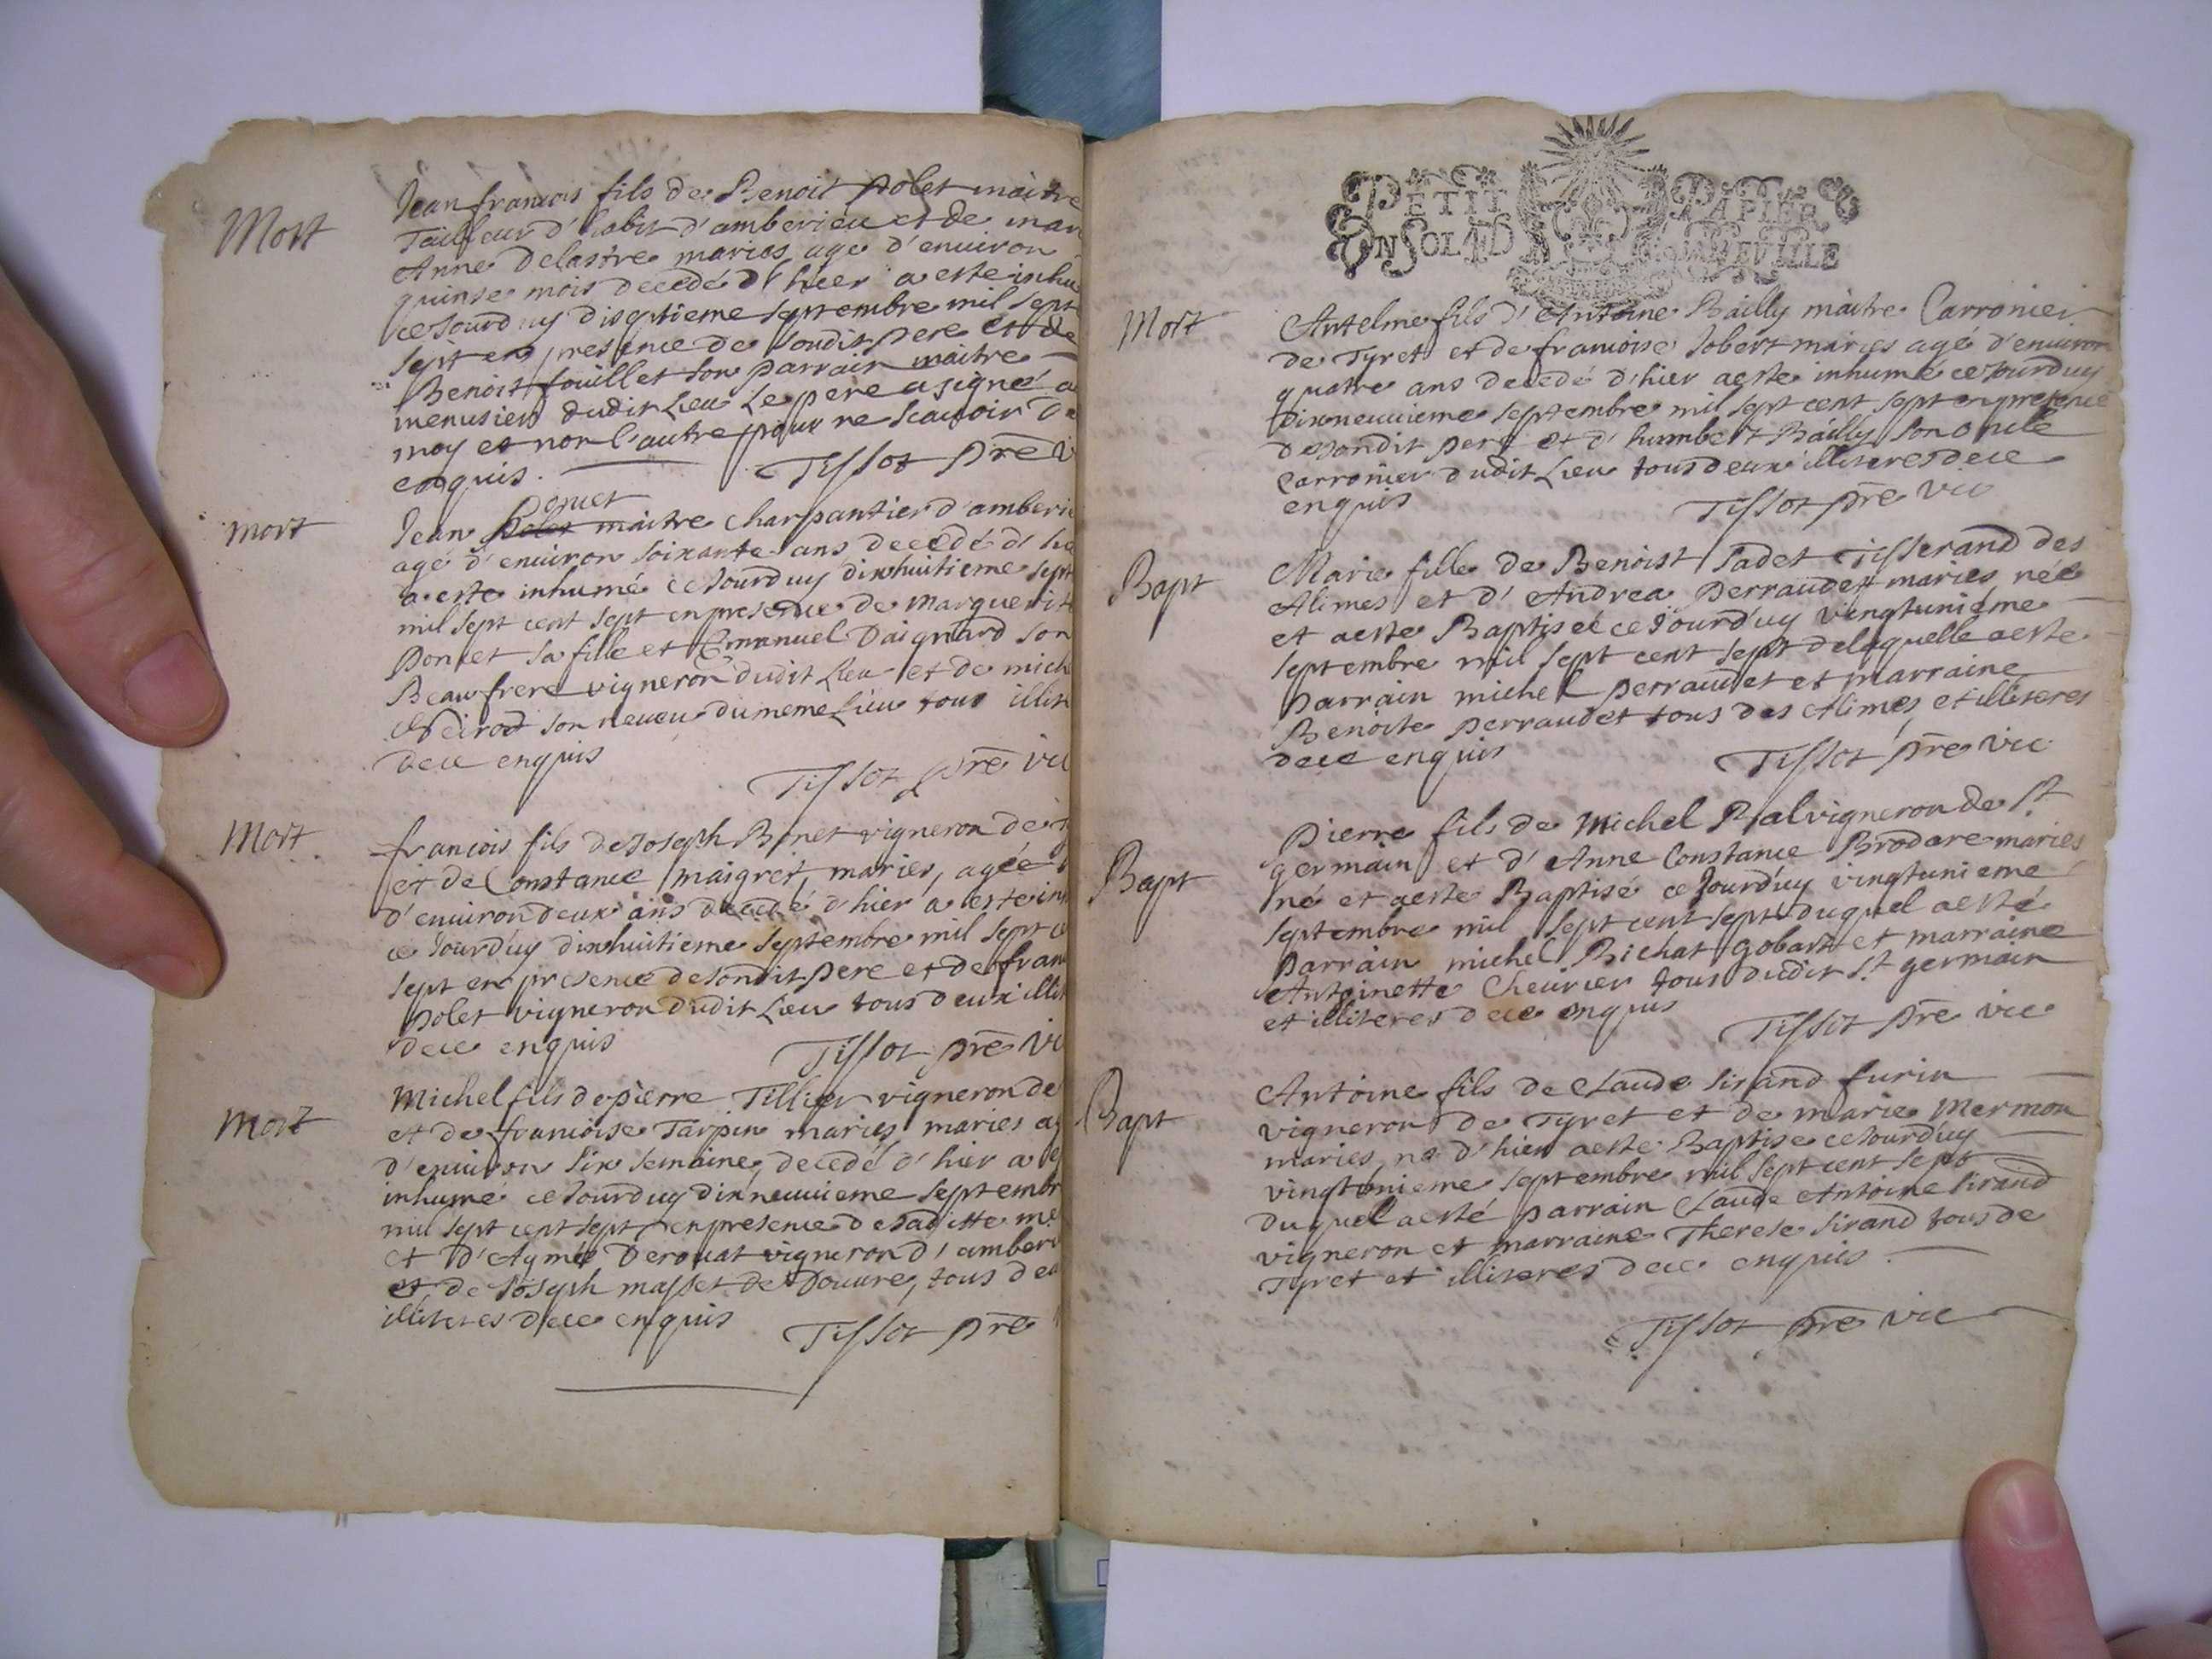 Mort
Jean francois fils de Benoit polet maitre
Tailleur d'habit d'amberieu et de mar
Anne Delastre maries age d'environ
quinse mois decedé d'hier a este inhu
ce Jourduy disseptieme septembre mil sept
sept en presence de sondit pere et de
Benoist fouillet son parrain maitre
menusier dudit Lieu Le pere a signé a
moy et non l'autre pour ne scavoir De
enquis. Tissot pre vi
mort
Poncet
Jean polet maitre charpantier d'amberie
agé d'environ soixante ans decedé d'hie
a este inhumé ce Jourduy dixhuitieme sept
mil sept cent sept en presence de marguerite
Poncet sa fille et Emanuel Daignard son
Beaufrere vigneron dudit Lieu et de mich
son neveu du meme Lieu tous illit
dece enquis
Tissot pre vic
Mort
francois fils de Joseph Bonet vigneron de
et de Constance maigret, maries, agée
d'environ deux ans decedé d'hier a este in
ce Jourd'uy dixhuitieme septembre mil sept ce
sept en presence de sondit pere et de fran
polet vigneron dudit Lieu tous deux illit
dece enquis Tissot pre vi
Mort
Michel fils de pierre Tillier vigneron de
et de francoise Tarpin maries maries ag
d'environ six semaine, decedé d'hier a e
inhumé ce Jourduy dixneuvieme septembr
mil sept cent sept en presence de saditte me
et d'Aymé Derouat vigneron d'amberi
et de Joseph masset de Douvre, tous de
illiteres dece enquis Tissot pre
PETIT PAPIER
UN SOL 4 D LA FEUILLE
Mort
Antelme fils d'Antoine Bailly maitre Carronier
de Tyret et de francoise Jobert maries agé d'environ
quatre ans decedé d'hier aeste inhumé ce Jourduy
Dixneuvieme septembre mil sept cent sept en presence
de sondit pere et d'humbert Bailly son oncle
Carronier dudit Lieu tous deux illiteres dece
enquis Tissot pre vic
Bapt
Marie fille de Benoist Sadet Tisserand des
Alimes et d'Andrea Perraudet maries née
et aeste Baptisée ce Jourd'uy vingtunieme
septembre mil sept cent sept de laquelle aeste
parrain michel perraudet et marraine
Benoite perraudet tous des Alimes et illiteres
dece enquis Tissot pre vic
Bapt
Pierre fils de Michel Ryal vigneron de St
germain et d'Anne Constance Brodare maries
né et aeste Baptisé ce Jourd'uy vingtunieme
septembre mil sept cent sept duquel aesté
parrain michel Bichat gobart et marraine
Antoinette Cheurier tous dudit St germain
et illiteres dece enquis Tissot pre vic
Bapt
Antoine fils de Claude Sirand furin
vigneron de Tyret et de marie Mermon
maries né d'hier aeste Baptise ce Jourd'uy
vingtunieme septembre mil sept cent sept
duquel aesté parrain Claude Antoine Sirand
vigneron et marraine Therese Sirand tous de
Tyret et illiteres dece enquis.
Tissot pre vic